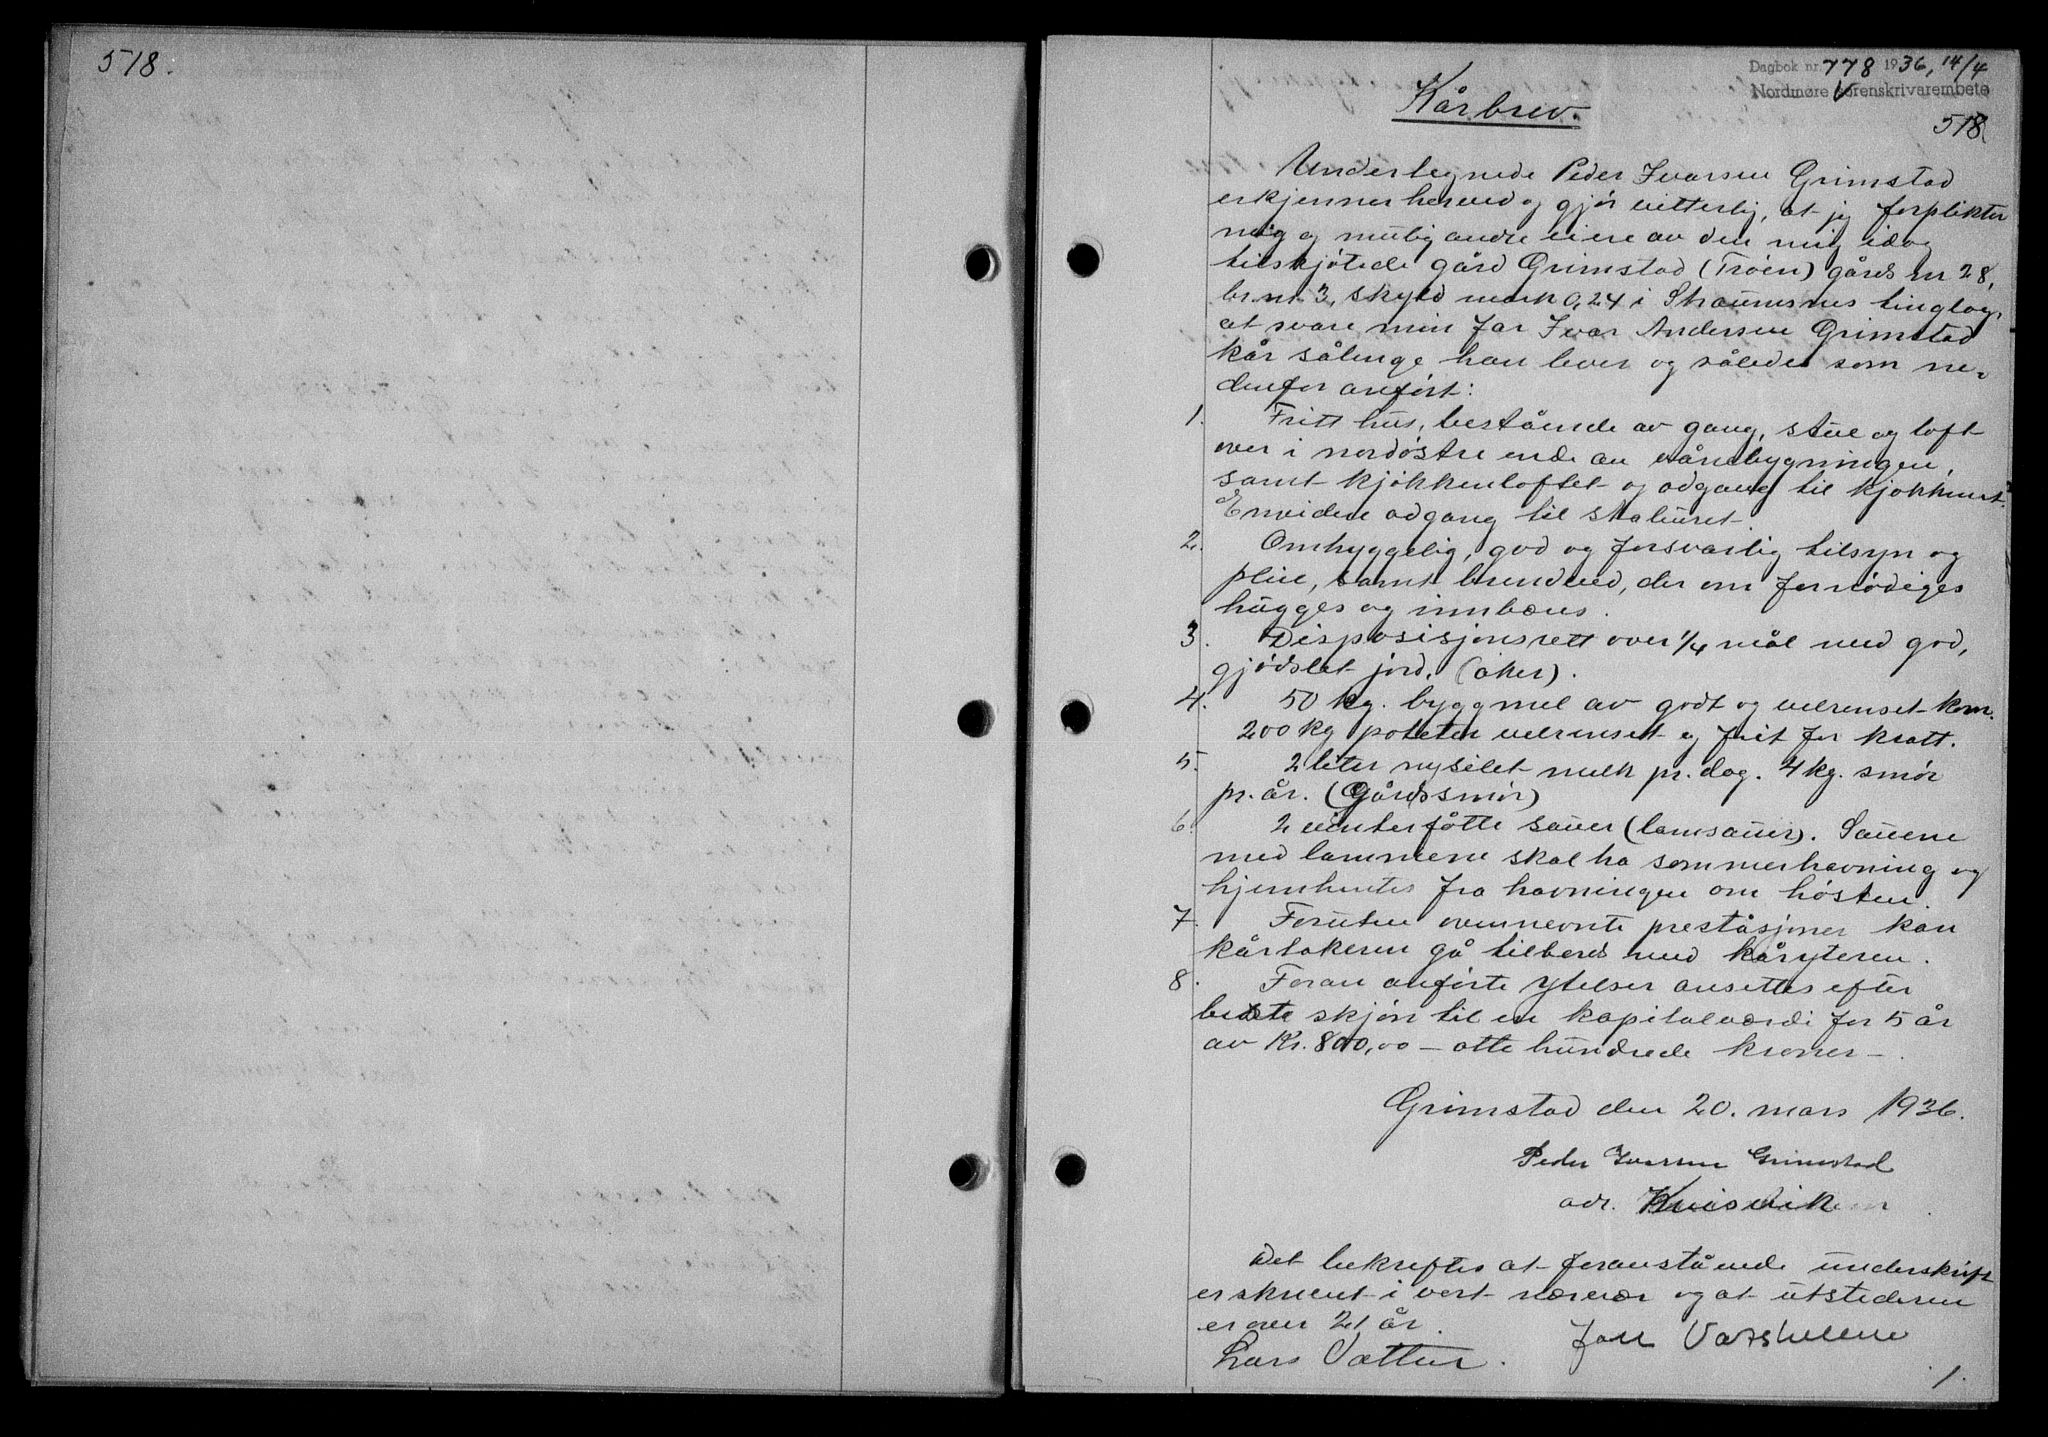 518.
Dagbok nr. 778 1936, 14/4
Nordmøre sorenskrivarembete
518.
Kårbrev.
Undertegnede Peder Ivarsen Grimstad
erkjenner herved og gjør vitterlig, at jeg forplikter
mig og mulig andre eiere av den mig idag
tilskjøtede gård Grimstad (Trøen) gårds nr 28,
br.nr. 3, skyld mark 0,24 i Straumsnes tinglag,
at svare min far Ivar Andersen Grimstad
kår sålenge han lever og således som ne-
denfor anført:
1. Fritt hus, bestående av gang, stue og loft
over i nordøstre ende av vånebygningen,
samt kjøkkenloftet og adgang til kjøkkenet.
Envidere adgang til staburet.
2. Omhyggelig, god og forsvarlig tilsyn og
pleie, samt brendeved, der om fornødiges
hugges og innbæres.
3. Disposisjonsrett over 1/4 mål med god,
gjødslet jord. (åker).
4. 50 kg. byggmel av godt og velrenset korn.
200 kg poteter velrenset og frit for kratt.
5. 2 liter nysilet melk pr. dag. 4 kg. smør
pr. år. (Gårdssmør)
6. 2 vinterfôtte sauer (lamsauer). Sauene
med lammene skal ha sommerhavning og
hjemhentes fra havningen om høsten.
7. Foruten ovennevnte prestasjoner kan
kårtakeren gå tilbords med kåryteren.
8. Foran anførte ytelser ansettes efter
beste skjøn til en kapitalverdi for 5 år
av Kr. 800,00 – otte hundrede kroner –.
Grimstad den 20. mars 1936.
Peder Ivarsen Grimstad
adr. Kvisvik
Det bekreftes at foranstående underskrift
er skrevet i vort nærvær og at utstederen
er over 21 år.
Lars Vatten. Jon
1.